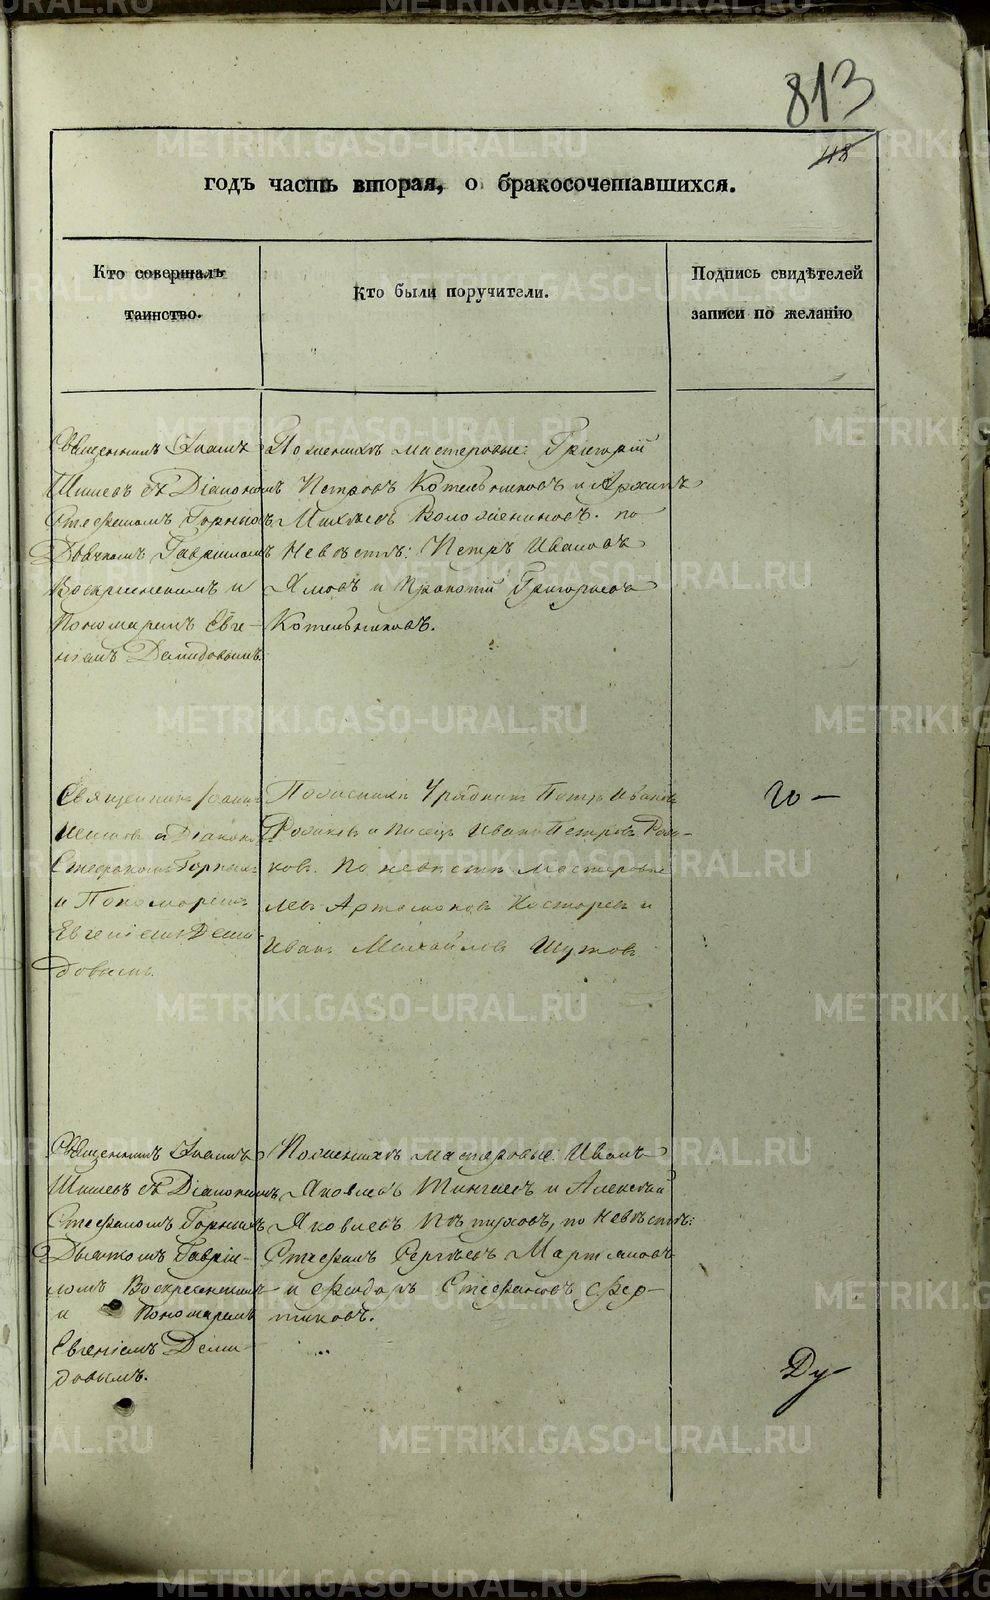 813
118
годъ часть вторая, о бракосочетавшихся.
Кто совершалъ
таинство.
Кто были поручители.
Подпись свидѣтелей
записи по желанію
Священникъ Іоаннъ
Шишевъ съ Діакономъ
Стефаномъ Горнымъ
Дьячкомъ Гавріиломъ
Воскресенскимъ и
Пономаремъ Евге-
ніемъ Демидовымъ.
По женихѣ мастеровые: Григорій
Петровъ Котельниковъ и Архипъ
Михѣевъ Воложениновъ. по
Невѣстѣ: Петръ Ивановъ
Ямовъ и Прокопій Григорьевъ
Котельниковъ.
Священникъ Іоаннъ
Шишевъ съ Діакономъ
Стефаномъ Горнымъ
и Пономаремъ
Евгеніемъ Деми
довымъ.
По женихѣ Урядникъ Петръ Ивановъ
и Писецъ Иванъ Петровъ
ковъ. По невѣстѣ Мастеровые
Левъ Артамоновъ Косторевъ и
Иванъ Михайловъ Шутовъ
Священникъ Іоаннъ
Шишевъ съ Діакономъ
Стефаномъ Горнымъ
Дьячкомъ Гавріи-
ломъ Воскресенскимъ
и Пономаремъ
Евгеніемъ Деми-
довымъ.
По женихѣ мастеровые: Иванъ
Яковлевъ и Алексѣй
Яковлевъ Пѣтуховъ, по Невѣстѣ:
Стефанъ Сергѣевъ Мартьяновъ
и Ѳедоръ Стефановъ Фер-
тиковъ.
METRIKI.GASO-URAL.RU